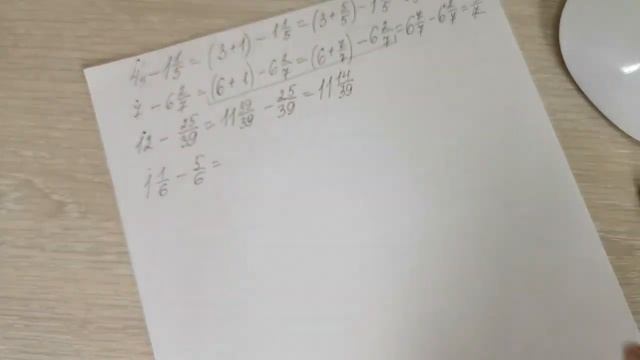 4 - 1 1/5 = (3+1) - 1 1/5 = (3 + 5/5) - 1 1/5
7 - 6 2/7 = (6+1) - 6 2/7 = (6 + 7/7) - 6 2/7 = 6 7/7 - 6 2/7 = 5/7
12 - 25/39 = 11 39/39 - 25/39 = 11 14/39
1 1/6 - 5/6 =